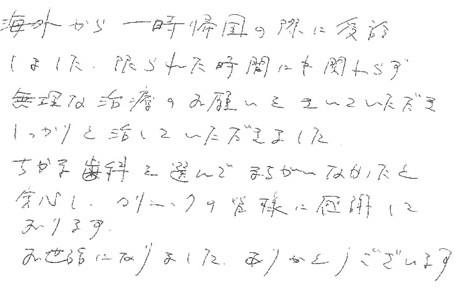 海外から一時帰国の際に受診
しました。限られた時間にも関わらず
無理な治療のお願いをきいていただき
しっかりと治していただきました。
ちかま歯科を選んでまちがいなかったと
安心し、クリニックの皆様に感謝して
おります。
お世話になりました。ありがとうございます